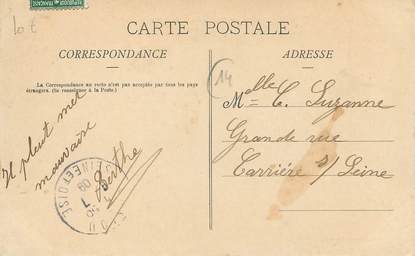 10 €
CARTE POSTALE
CORRESPONDANCE
ADRESSE
La Correspondance au recto n'est pas acceptée par tous les pays
étrangers. (Se renseigner à la Poste.)
14
Il pleut
mauvaise
Berthe
SEINE ET OISE
Melle C. Suzanne
Grande rue
Carrière s/ Seine